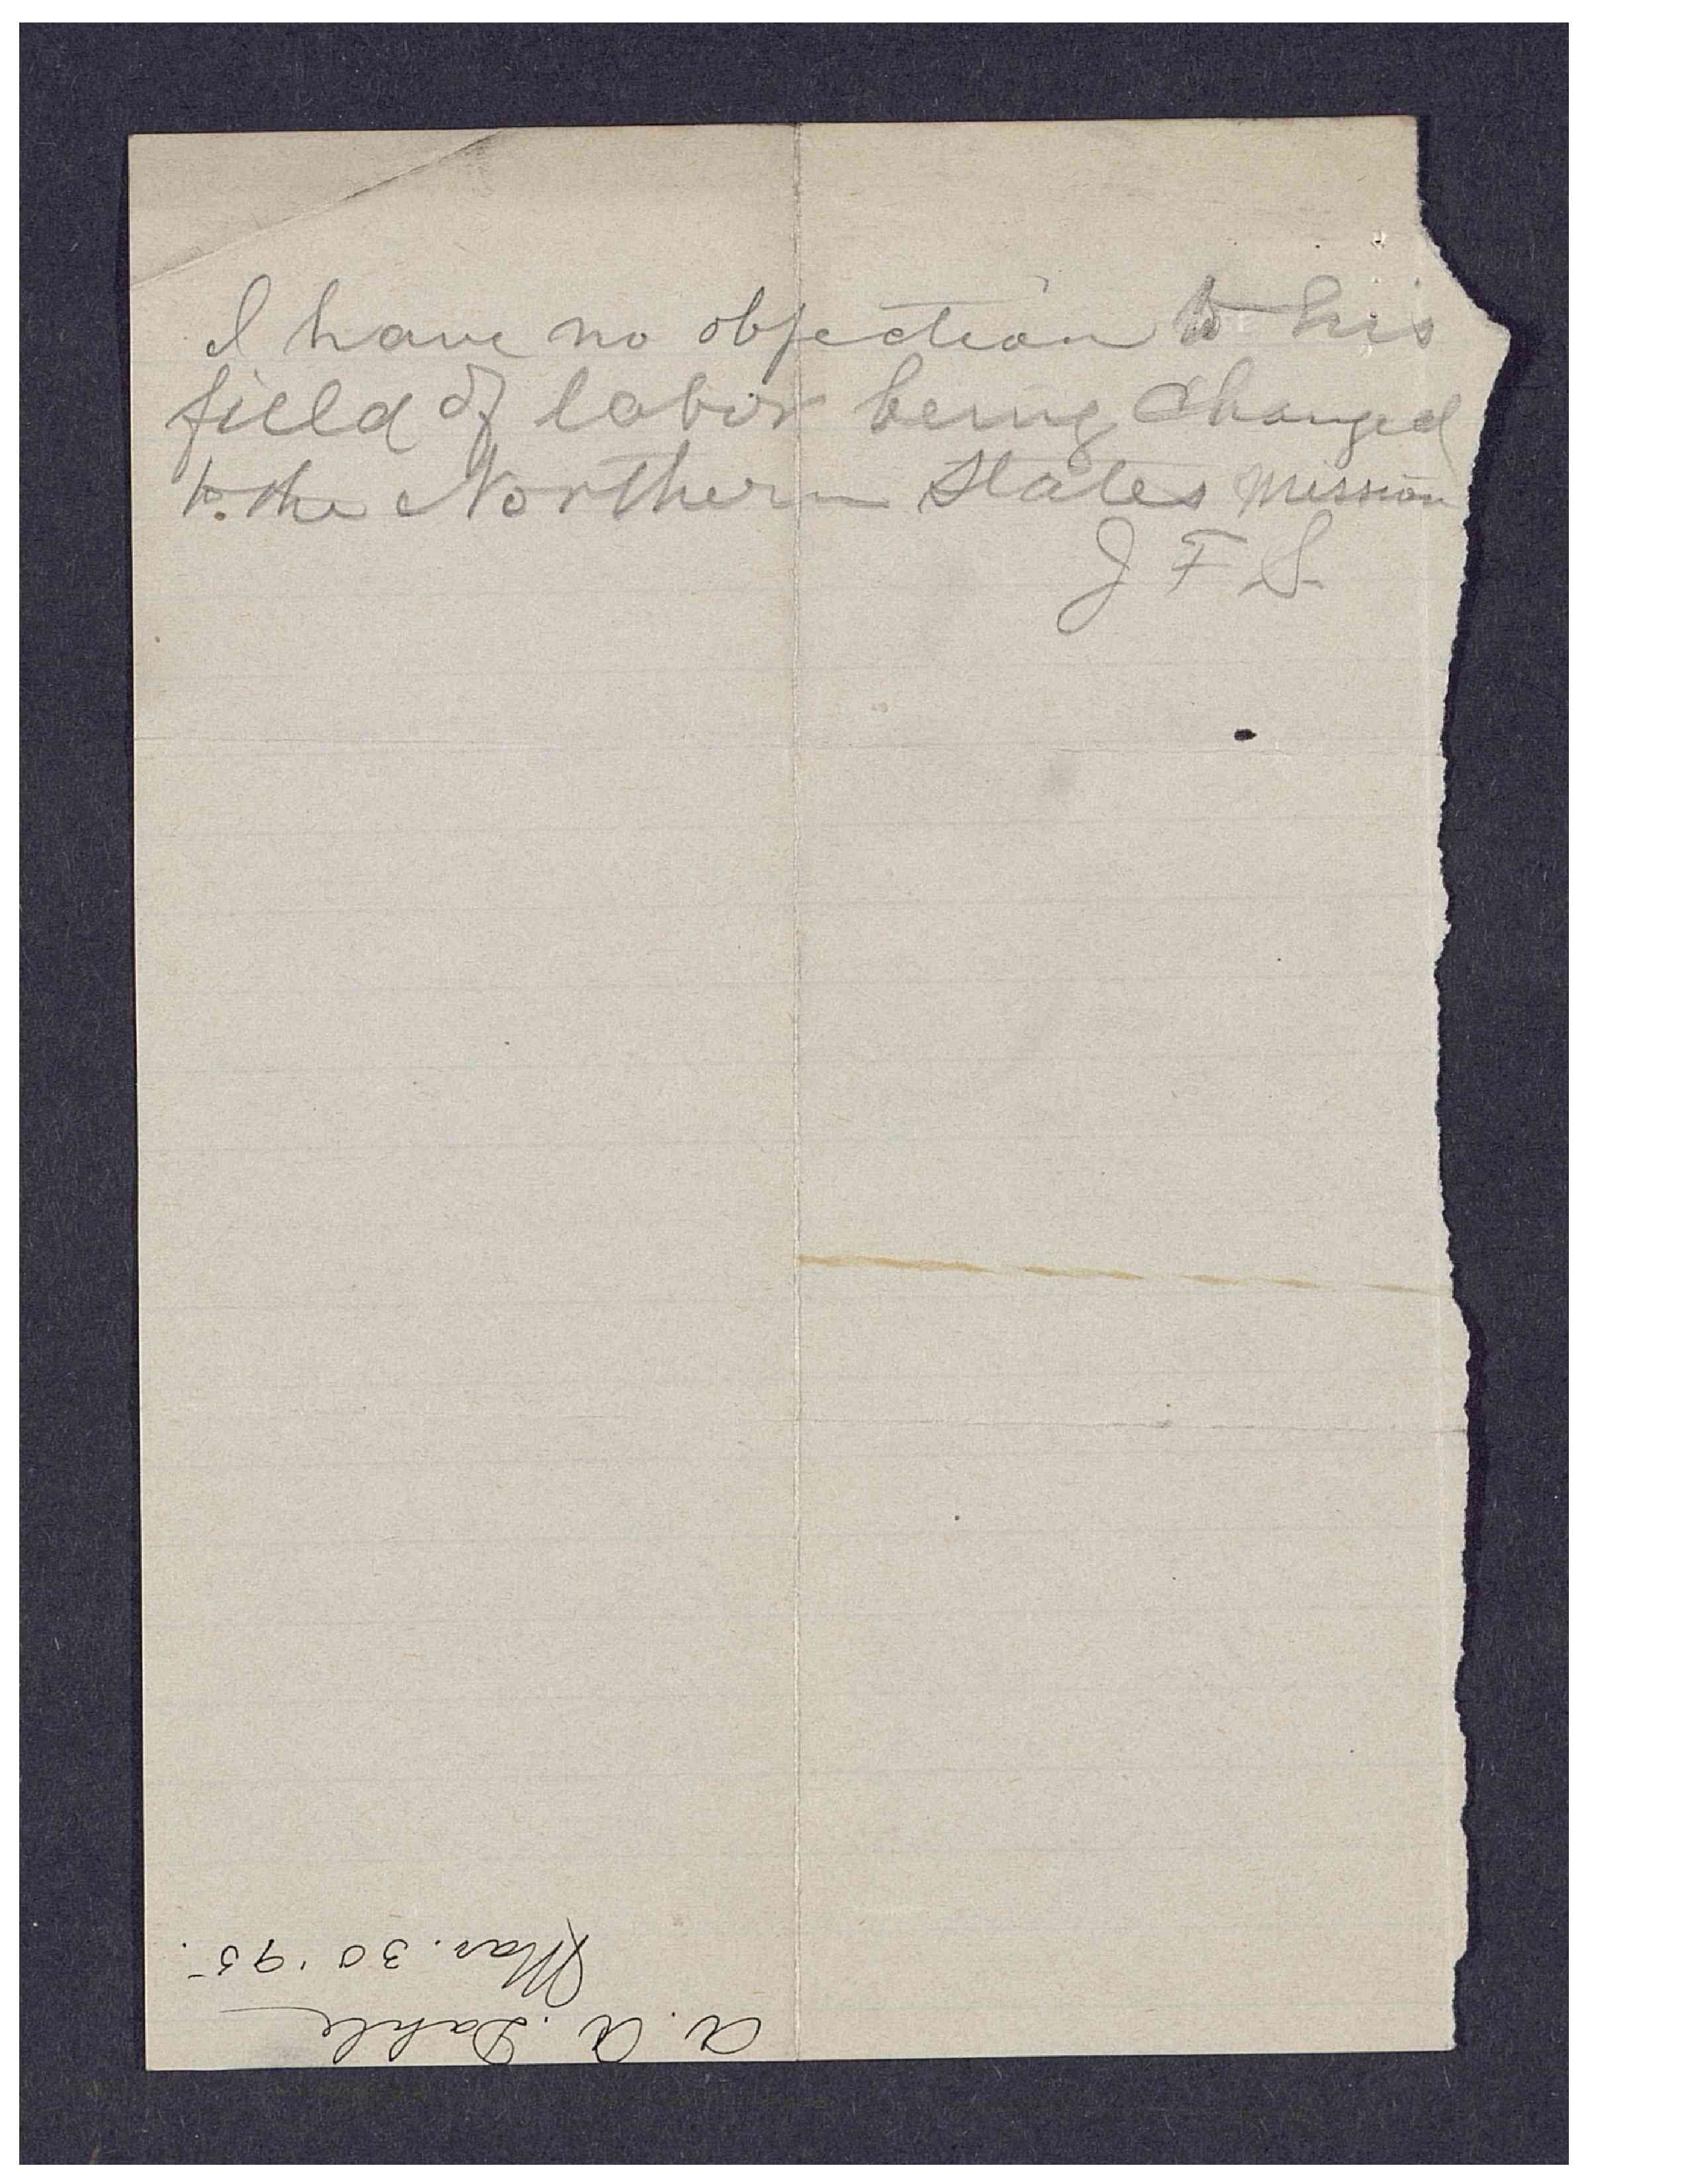 I have no objection to his
field of labor being changed
to the Northern States Mission
J F S.
A. A. Dahle
Mar. 30 '95.